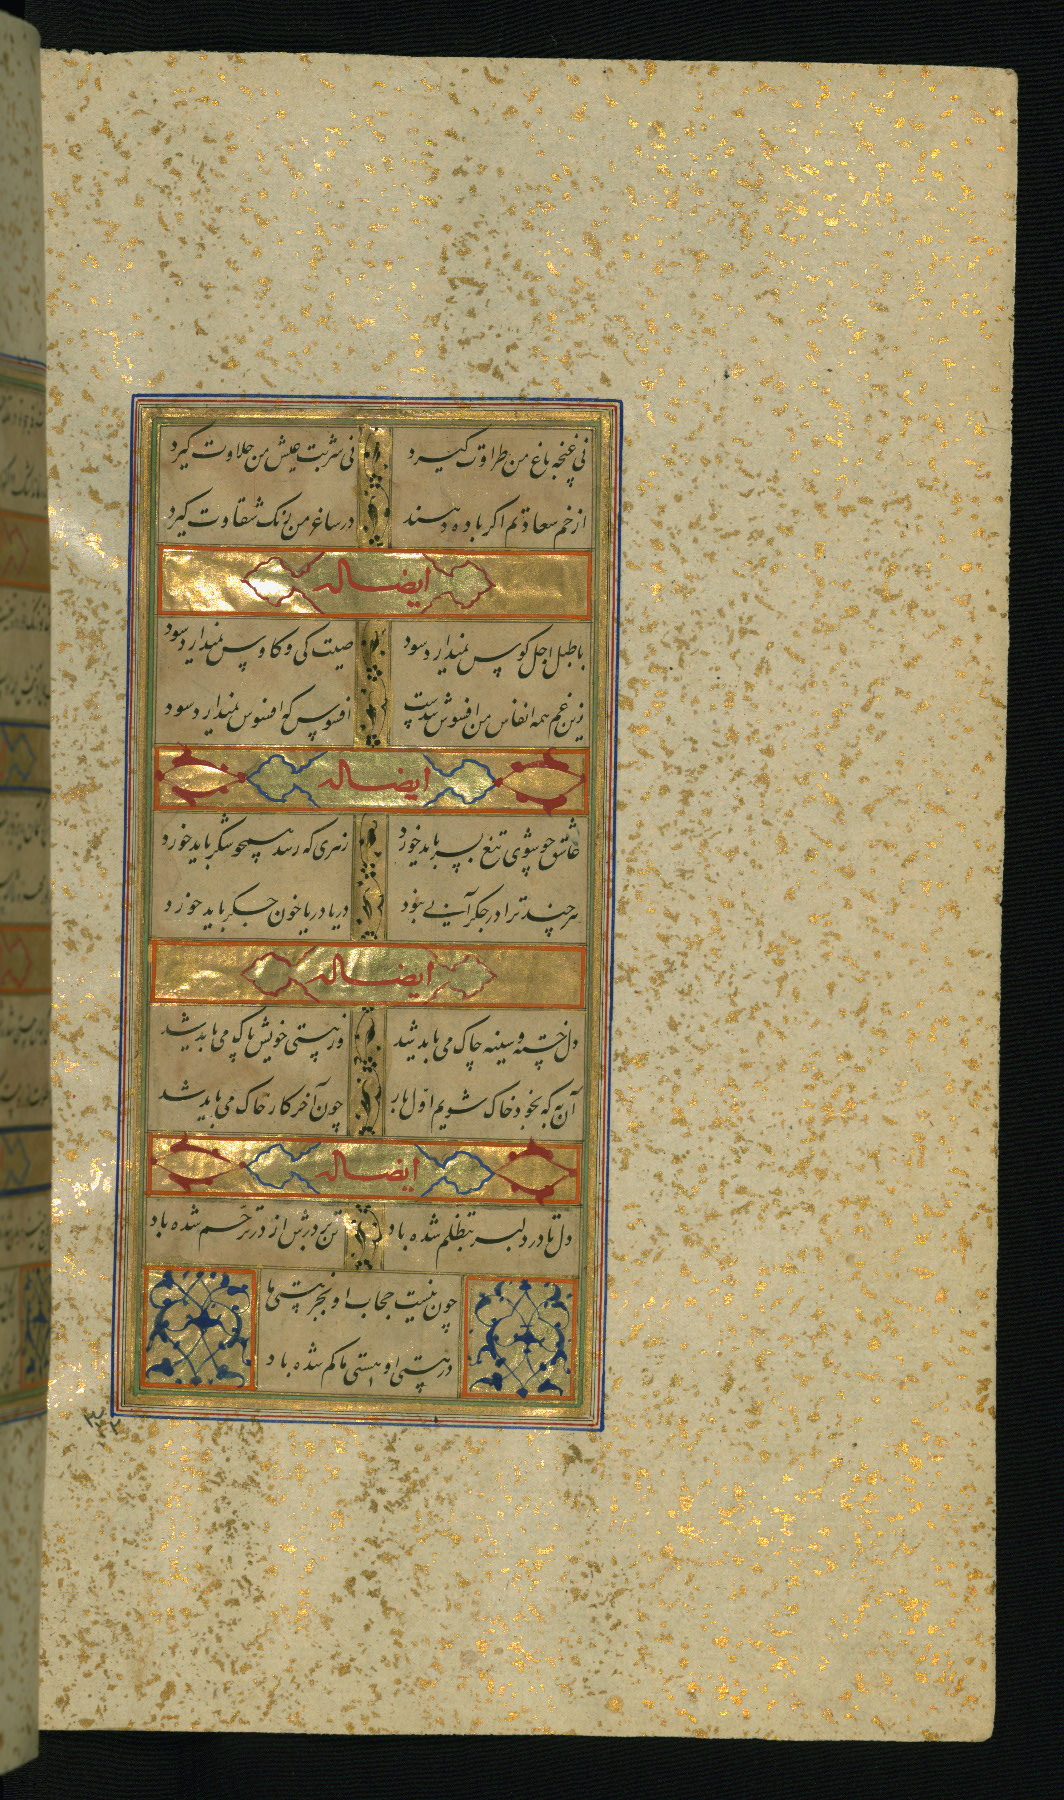 نی غنچه باغ من طراوت گیرد نی شربت عیش من حلاوت گیرد
از خم سعادتم اگر باده دهند در ساغر من رنگ شقاوت گیرد
ایضا له
با طبل اجل کوس نمیدارد سود صیت کی و کاوس نمیدارد سود
زین غم همه انفاس من افسوس شدست افسوس که افسوس نمیدارد سود
ایضا له
عاشق چو شوی تیغ بسر باید خورد زهری که رسد همچو شکر باید خورد
هر چند ترا در جگر آبی نبود دریا دریا خون جگر باید خورد
ایضا له
دل خسته و سینه چاک می باید شد وز هستی خویش پاک می باید شد
آن به که بخود خاک شویم اول بار چون آخر کار خاک می باید شد
ایضا له
دل تا در دلبر بتظلم شده باد تن بر درش از در ترحم شده باد
چون نیست حجاب او بجز هستی ما
در هستی او هستی ما گم شده باد